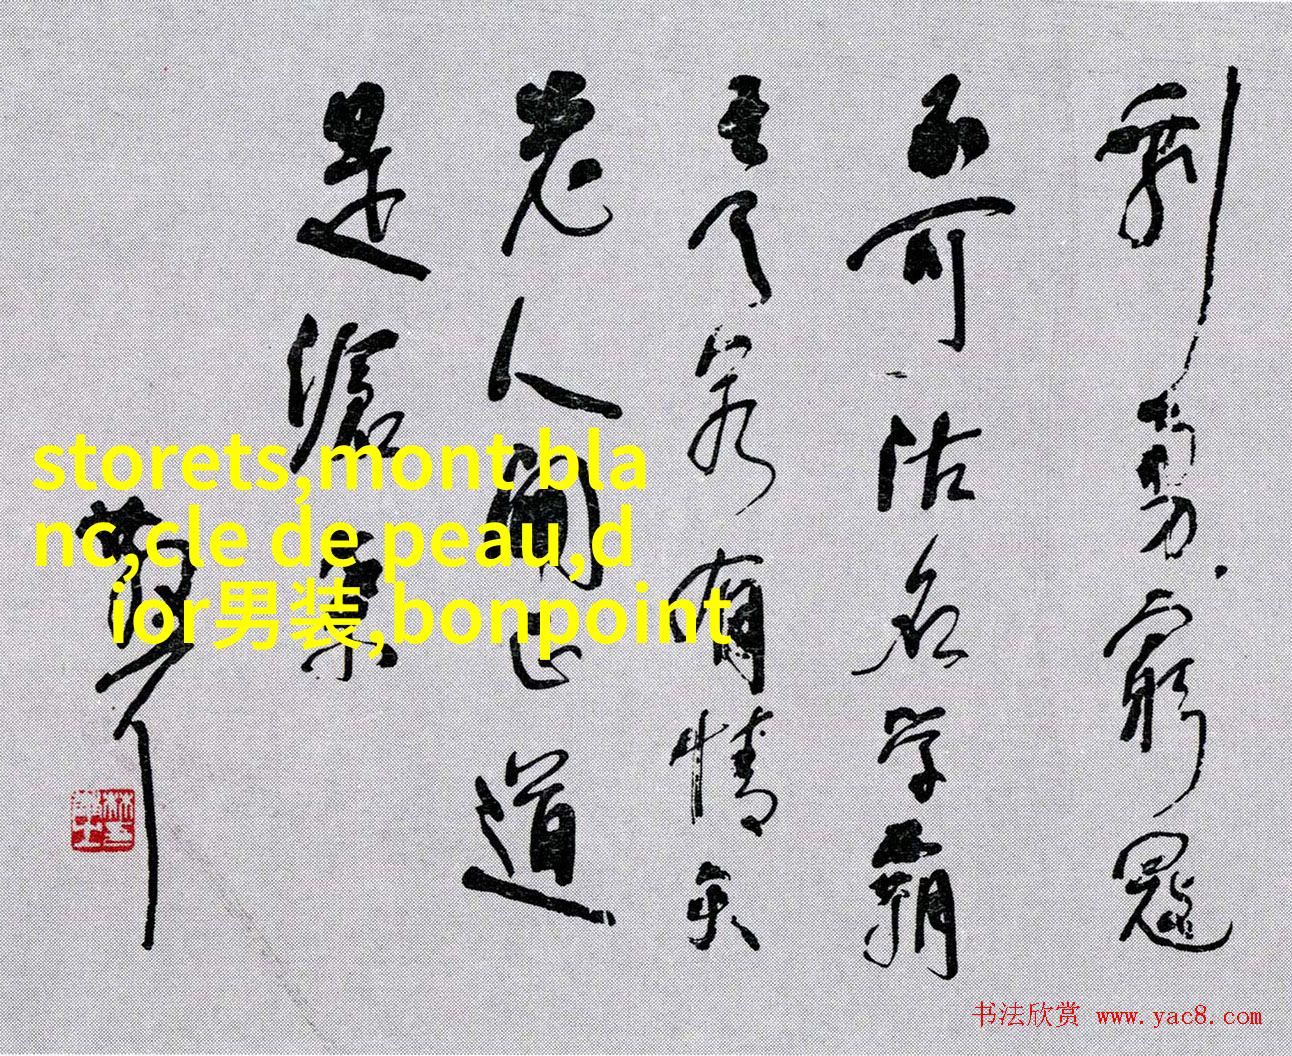 剩勇窮寇
不可沽名学霸
王天若有情天
老人間正道
是滄桑
storets,mont bla
nc,cle de peau,d
ior男装,bonpoint
书法欣赏 www.yac8.com